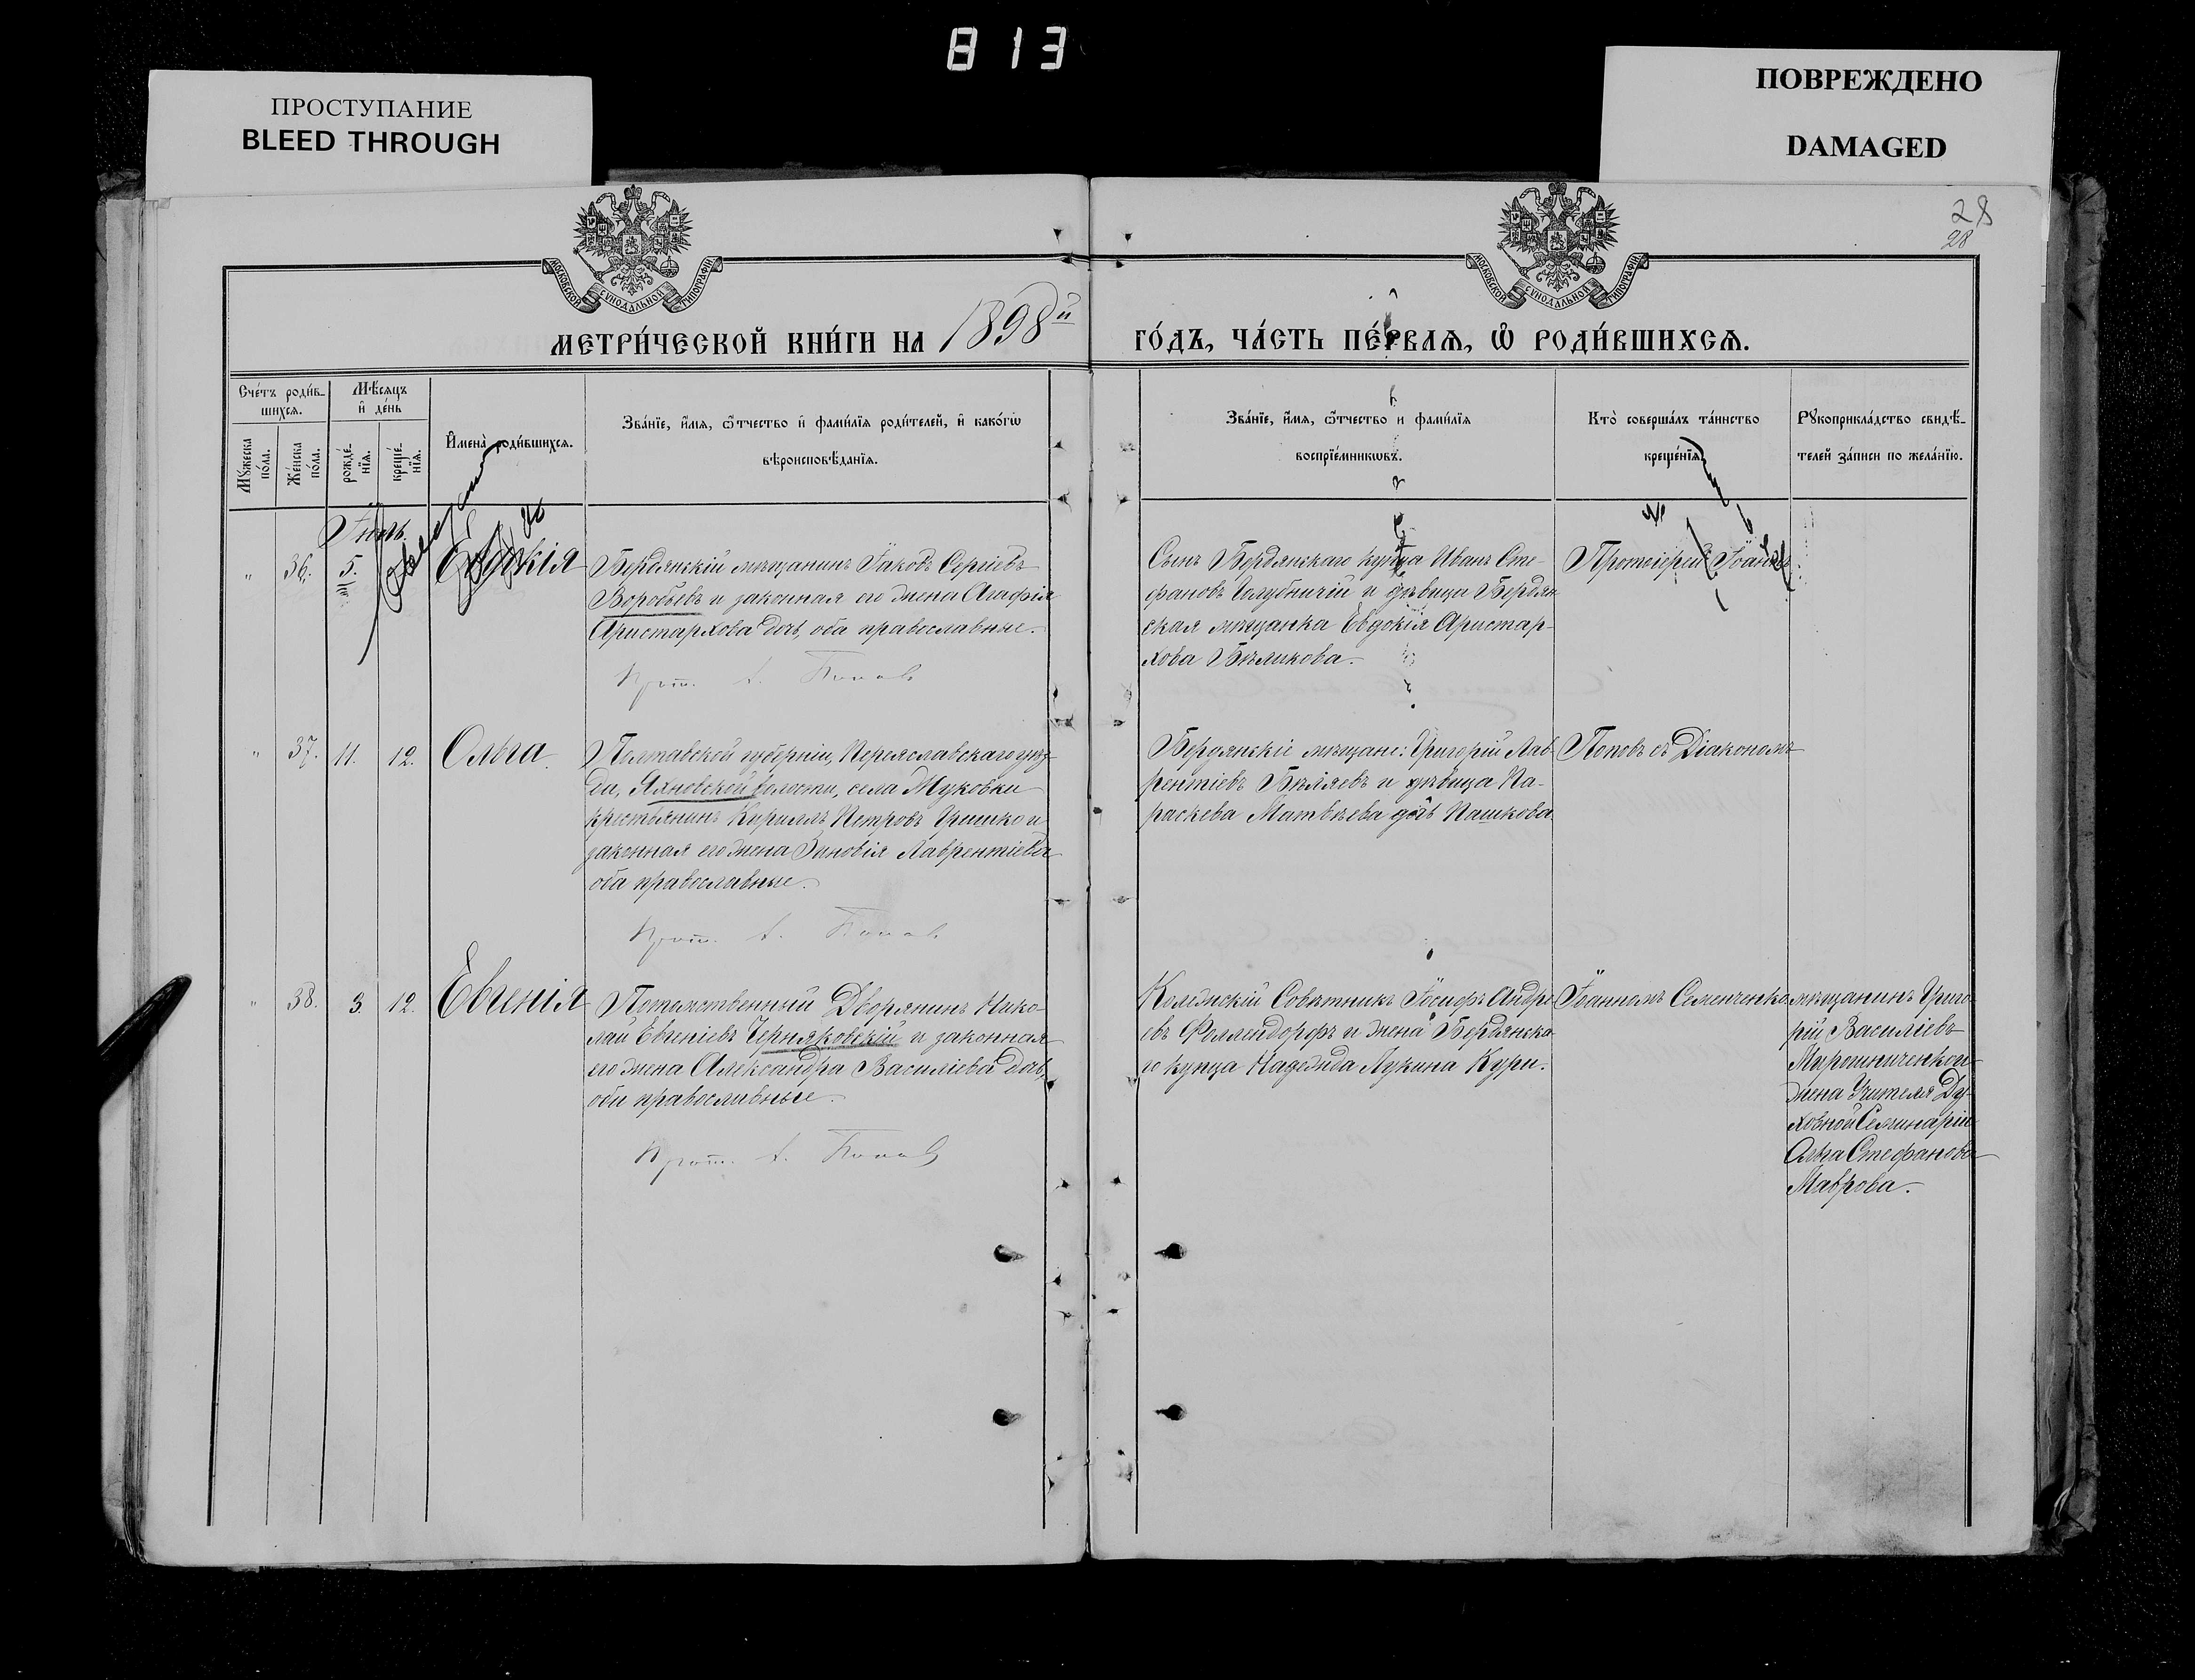 813
ПРОСТУПАНИЕ
BLEED THROUGH
ПОВРЕЖДЕНО
DAMAGED
28
28
МОСКОВСКОЙ СѴНОДАЛЬНОЙ ТИПОГРАФІИ
МОСКОВСКОЙ СѴНОДАЛЬНОЙ ТИПОГРАФІИ
МЕТРИ́ЧЕСКОЙ КНИ́ГИ НА 1898й
ГО́ДЪ, ЧА́СТЬ ПЕ́РВАѦ, Ѿ РОДИ́ВШИХСѦ.
Сче́тъ роди́в-
шихсѧ.
Мꙋ́жеска по́ла.
Же́нска по́ла.
Мѣ́сѧцъ
и҆ де́нь
рожде́-
нїѧ.
креще́-
нїѧ.
И҆мена̀ роди́вшихсѧ.
Зва́нїе, и҆́мѧ, ѻ҆́тчество и҆ фами́лїѧ роди́телей, и҆ како́гѡ
вѣроисповѣ́данїѧ.
Зва́нїе, и҆́мѧ, ѻ҆́тчество и҆ фами́лїѧ
воспрїе́мникѡвъ.
Кто̀ соверша́лъ та́инство
креще́нїѧ.
Рꙋкоприкла́дство свидѣ́-
телей за́писи по жела́нїю.
Іюль.
" 36. 5.
Евдокія
Бердянскій мѣщанинъ Іаковъ Сергіевъ
Воробьевъ и законная его жена Агафія
Аристархова дочь, оба православные.
Прот. І. Поповъ
Сынъ Бердянскаго купца Иванъ Сте-
фановъ Голубничій и дѣвица Бердян
ская мѣщанка Евдокія Аристар-
хова Бѣликова.
Протоіерей Іоаннъ
" 37. 11. 12. Ольга
Полтавской губерніи, Переяславскаго уѣз-
да, Яхновской волости, села Муковки
крестьянинъ Кириллъ Петровъ Гришко и
законная его жена Зиновія Лаврентіева
оба православные.
Прот. І. Поповъ
Бердянскіе мѣщане: Григорій Лав-
рентіевъ Бѣляевъ и дѣвица Па-
раскева Матвѣева дочь Пашкова
Поповъ съ Діакономъ
" 38. 3. 12. Евгенія
Потомственный Дворянинъ Нико-
лай Евгеніевъ Черняковскій и законная
его жена Александра Василіева дочь,
оба православные.
Прот. І. Поповъ
Коллежскій Совѣтникъ Іосифъ Андре
евъ Фоллендорфъ и жена Бердянска
го купца Надежда Лукина Кури.
Іоанномъ Семенченко
мѣщанинъ Григо
рій Василіевъ
Мирошниченко и
жена Учителя Ду-
ховной Семинаріи
Ольга Стефанова
Маврова.